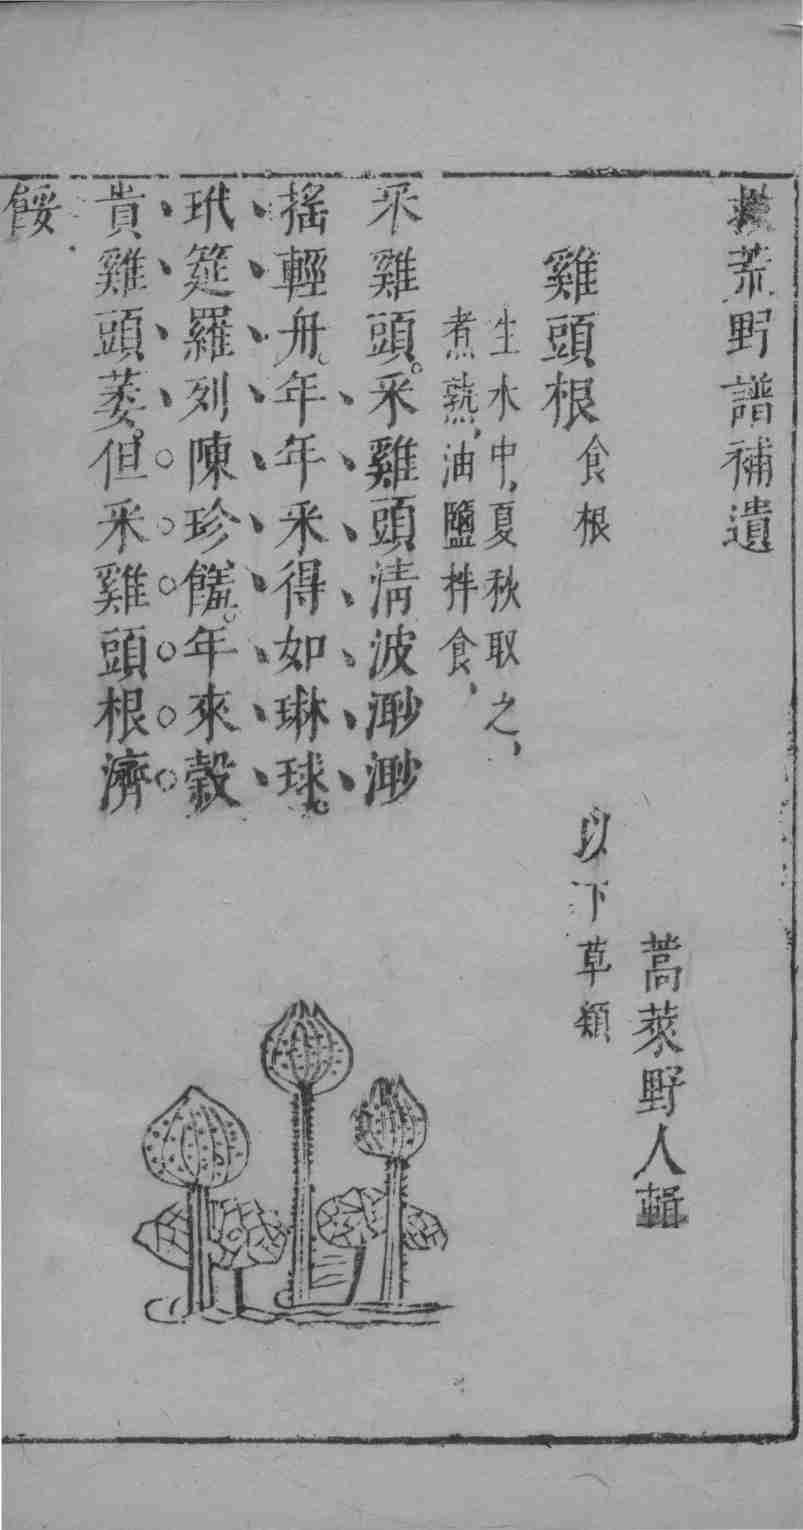 救荒野譜補遺
蒿萊野人輯
雞頭根食根
以下草類
生水中，夏秋取之，
煮熟，油鹽拌食，
采雞頭。采雞頭清波渺渺
搖輕舟。年年采得如琳球。
玳筵羅列陳珍饈。年來穀
貴雞頭萎。但采雞頭根濟
餒